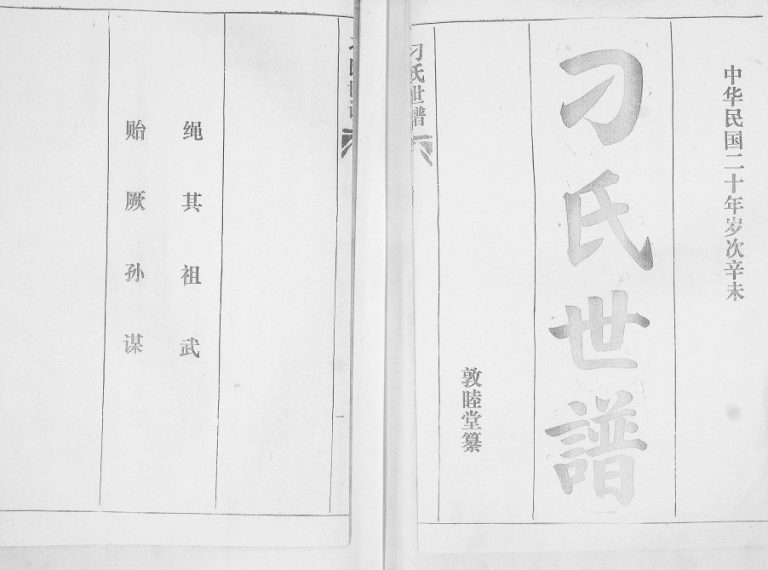 中华民国二十年岁次辛未
刁氏世譜
敦睦堂纂
刁氏世谱
绳其祖武
贻厥孙谋